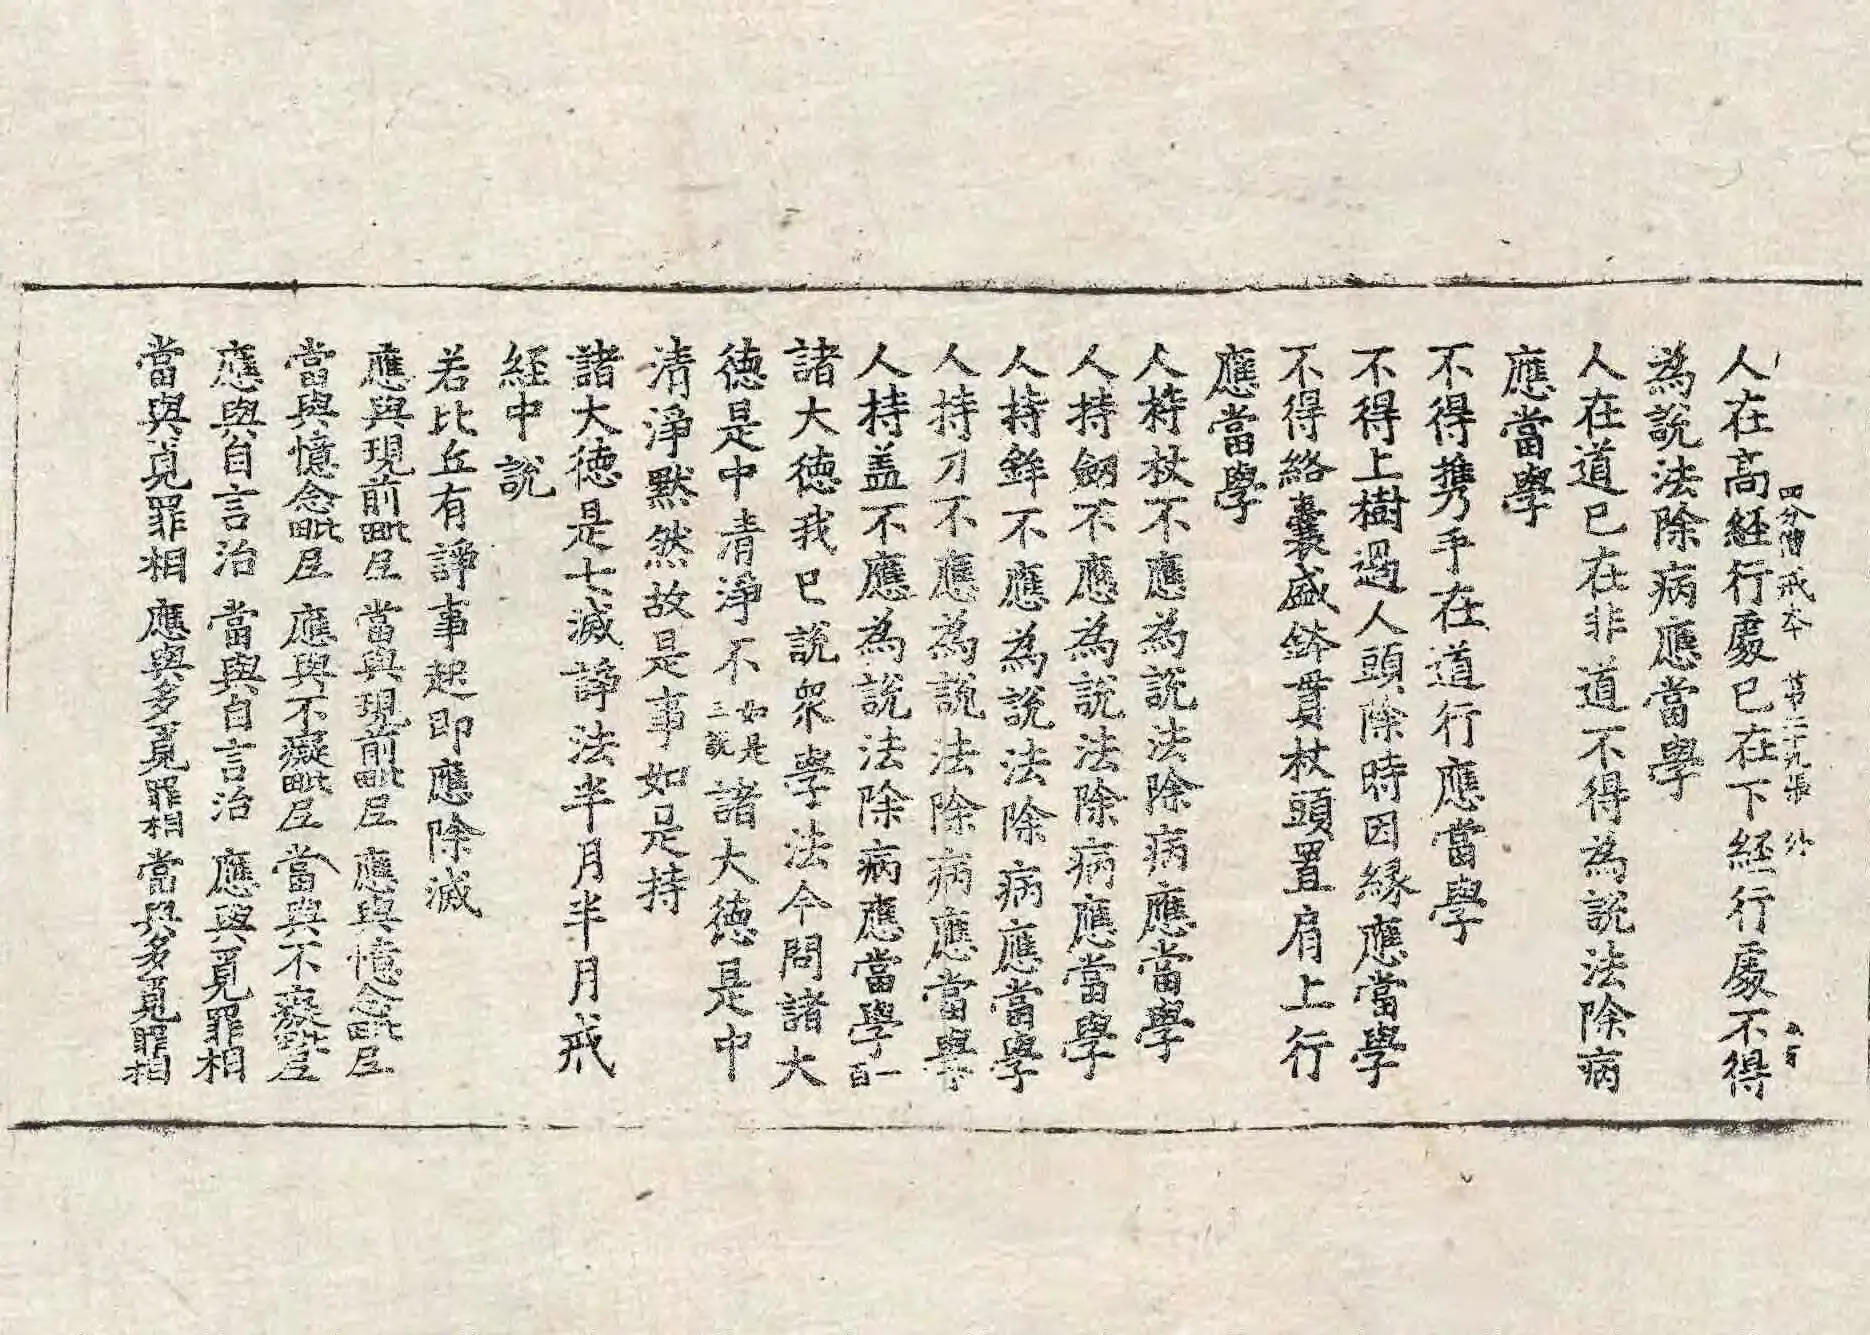 人在高経行處已在下経行處不得
四分僧戒本 第二十九張 外
為說法除病應當學
人在道已在非道不得為說法除病
應當學
不得携手在道行應當學
不得上樹過人頭除時因縁應當學
不得絡囊盛鉢貫杖頭置肩上行
應當學
人持杖不應為說法除病應當學
人持劒不應為說法除病應當學
人持鉾不應為說法除病應當學
人持刀不應為說法除病應當學
人持盖不應為說法除病應當學一百
諸大徳我已說衆學法今問諸大
徳是中清淨不如是三說諸大徳是中
清淨默然故是事如是持
諸大徳是七滅諍法半月半月戒
経中說
若比丘有諍事起即應除滅
應與現前毗尼 當與現前毗尼 應與憶念毗尼
當與憶念毗尼 應與不癡毗尼 當與不癡毗尼
應與自言治 當與自言治 應與覓罪相
當與覓罪相 應與多覓罪相 當與多覓罪相